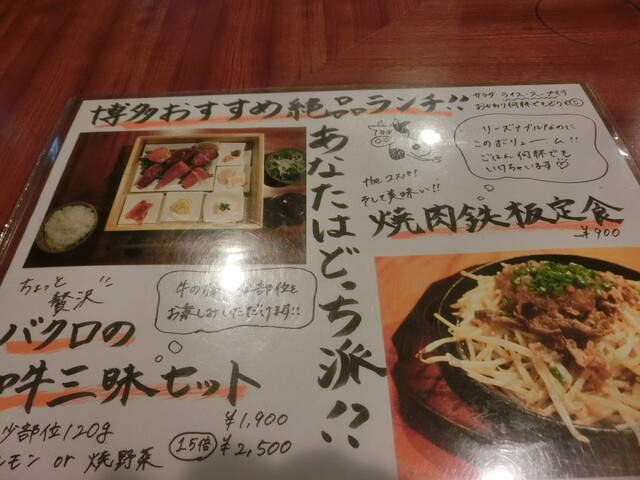 博多おすすめ絶品ランチ!!
サラダ・ライス・スープ
おかわり何杯でも
あなたはどっち派!?
リーズナブルなのに
このボリューム!!
ごはん何杯でも
いけちゃいます
the コスパ!
そして美味い!!
焼肉鉄板定食
¥900
ちょっと
贅沢
牛の 部位を
お楽しみいただけます!!
バクロの
牛三昧セット
部位120g
¥1,900
1.5倍 ¥2,500
ルモン or 焼野菜